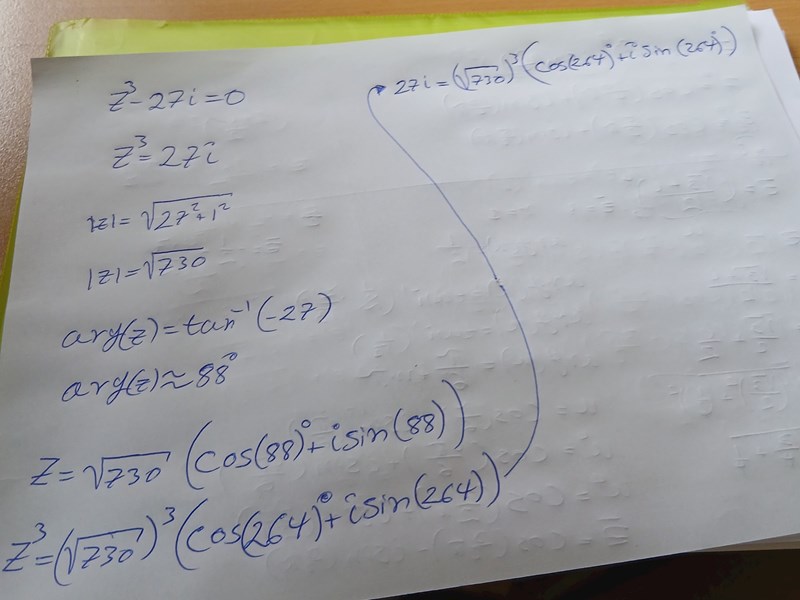 z³-27i=0
z³=27i
|z|=√(27²+1²)
|z|=√730
arg(z)=tan⁻¹(-27)
arg(z)≈88°
z=√730 (cos(88)°+isin(88))
z³=(√730)³(cos(264)°+isin(264))
27i=(√730)³(cos(264)°+isin(264)°)